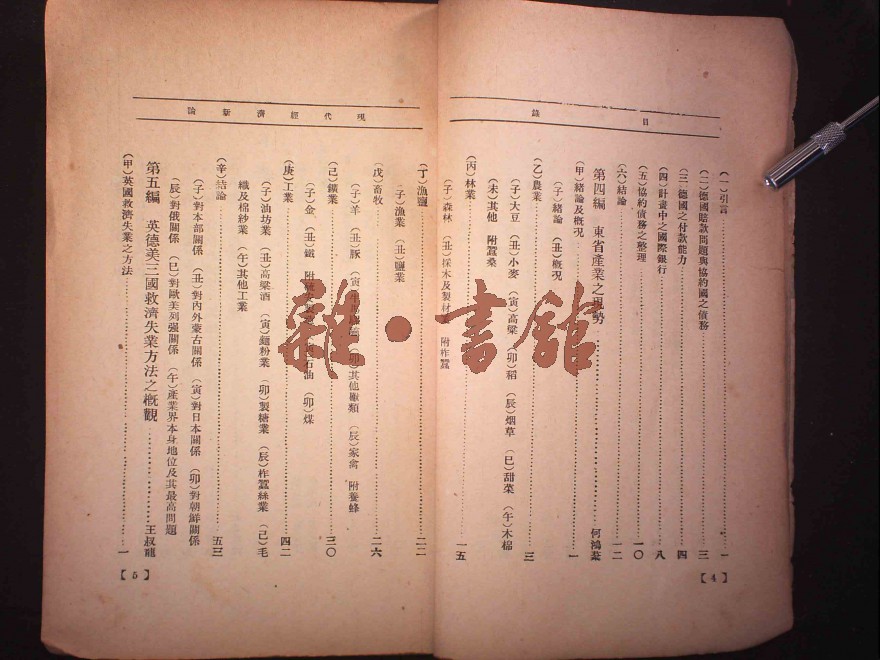 目錄
(一)引言……一
(二)德國賠款問題與協約國之債務……三
(三)德國之付款能力……四
(四)計畫中之國際銀行……八
(五)協約債務之整理……一〇
(六)結論……一二
第四編 東省產業之現勢……何鴻
(甲)緒論及概況……一
(子)緒論 (丑)概况
(乙)農業……三
(子)大豆 (丑)小麥 (寅)高粱 (卯)稻 (辰)烟草 (巳)甜菜 (午)木棉
(未)其他 附蠶桑
(丙)林業……一五
(子)森林 (丑)採木及製材 附柞蠶
【4】
現代經濟新論
(丁)漁鹽……二二
(子)漁業 (丑)鹽業
(戊)畜牧……二六
(子)羊 (丑)豚 (寅) (卯)其他獸類 (辰)家禽 附養蜂
(己)鑛業……三〇
(子)金 (丑)鐵 附 石油 (卯)煤
(庚)工業……四二
(子)油坊業 (丑)高粱酒 (寅)麵粉業 (卯)製糖業 (辰)柞蠶絲業 (己)毛
織及棉紗業 (午)其他工業
(辛)結論……五三
(子)對本部關係 (丑)對內外蒙古關係 (寅)對日本關係 (卯)對朝鮮關係
(辰)對俄關係 (巳)對歐美列强關係 (午)產業界本身地位及其最高問題
第五編 英德美三國救濟失業方法之概觀……王叔龍
(甲)英國救濟失業之方法……一
【5】
雜·書館